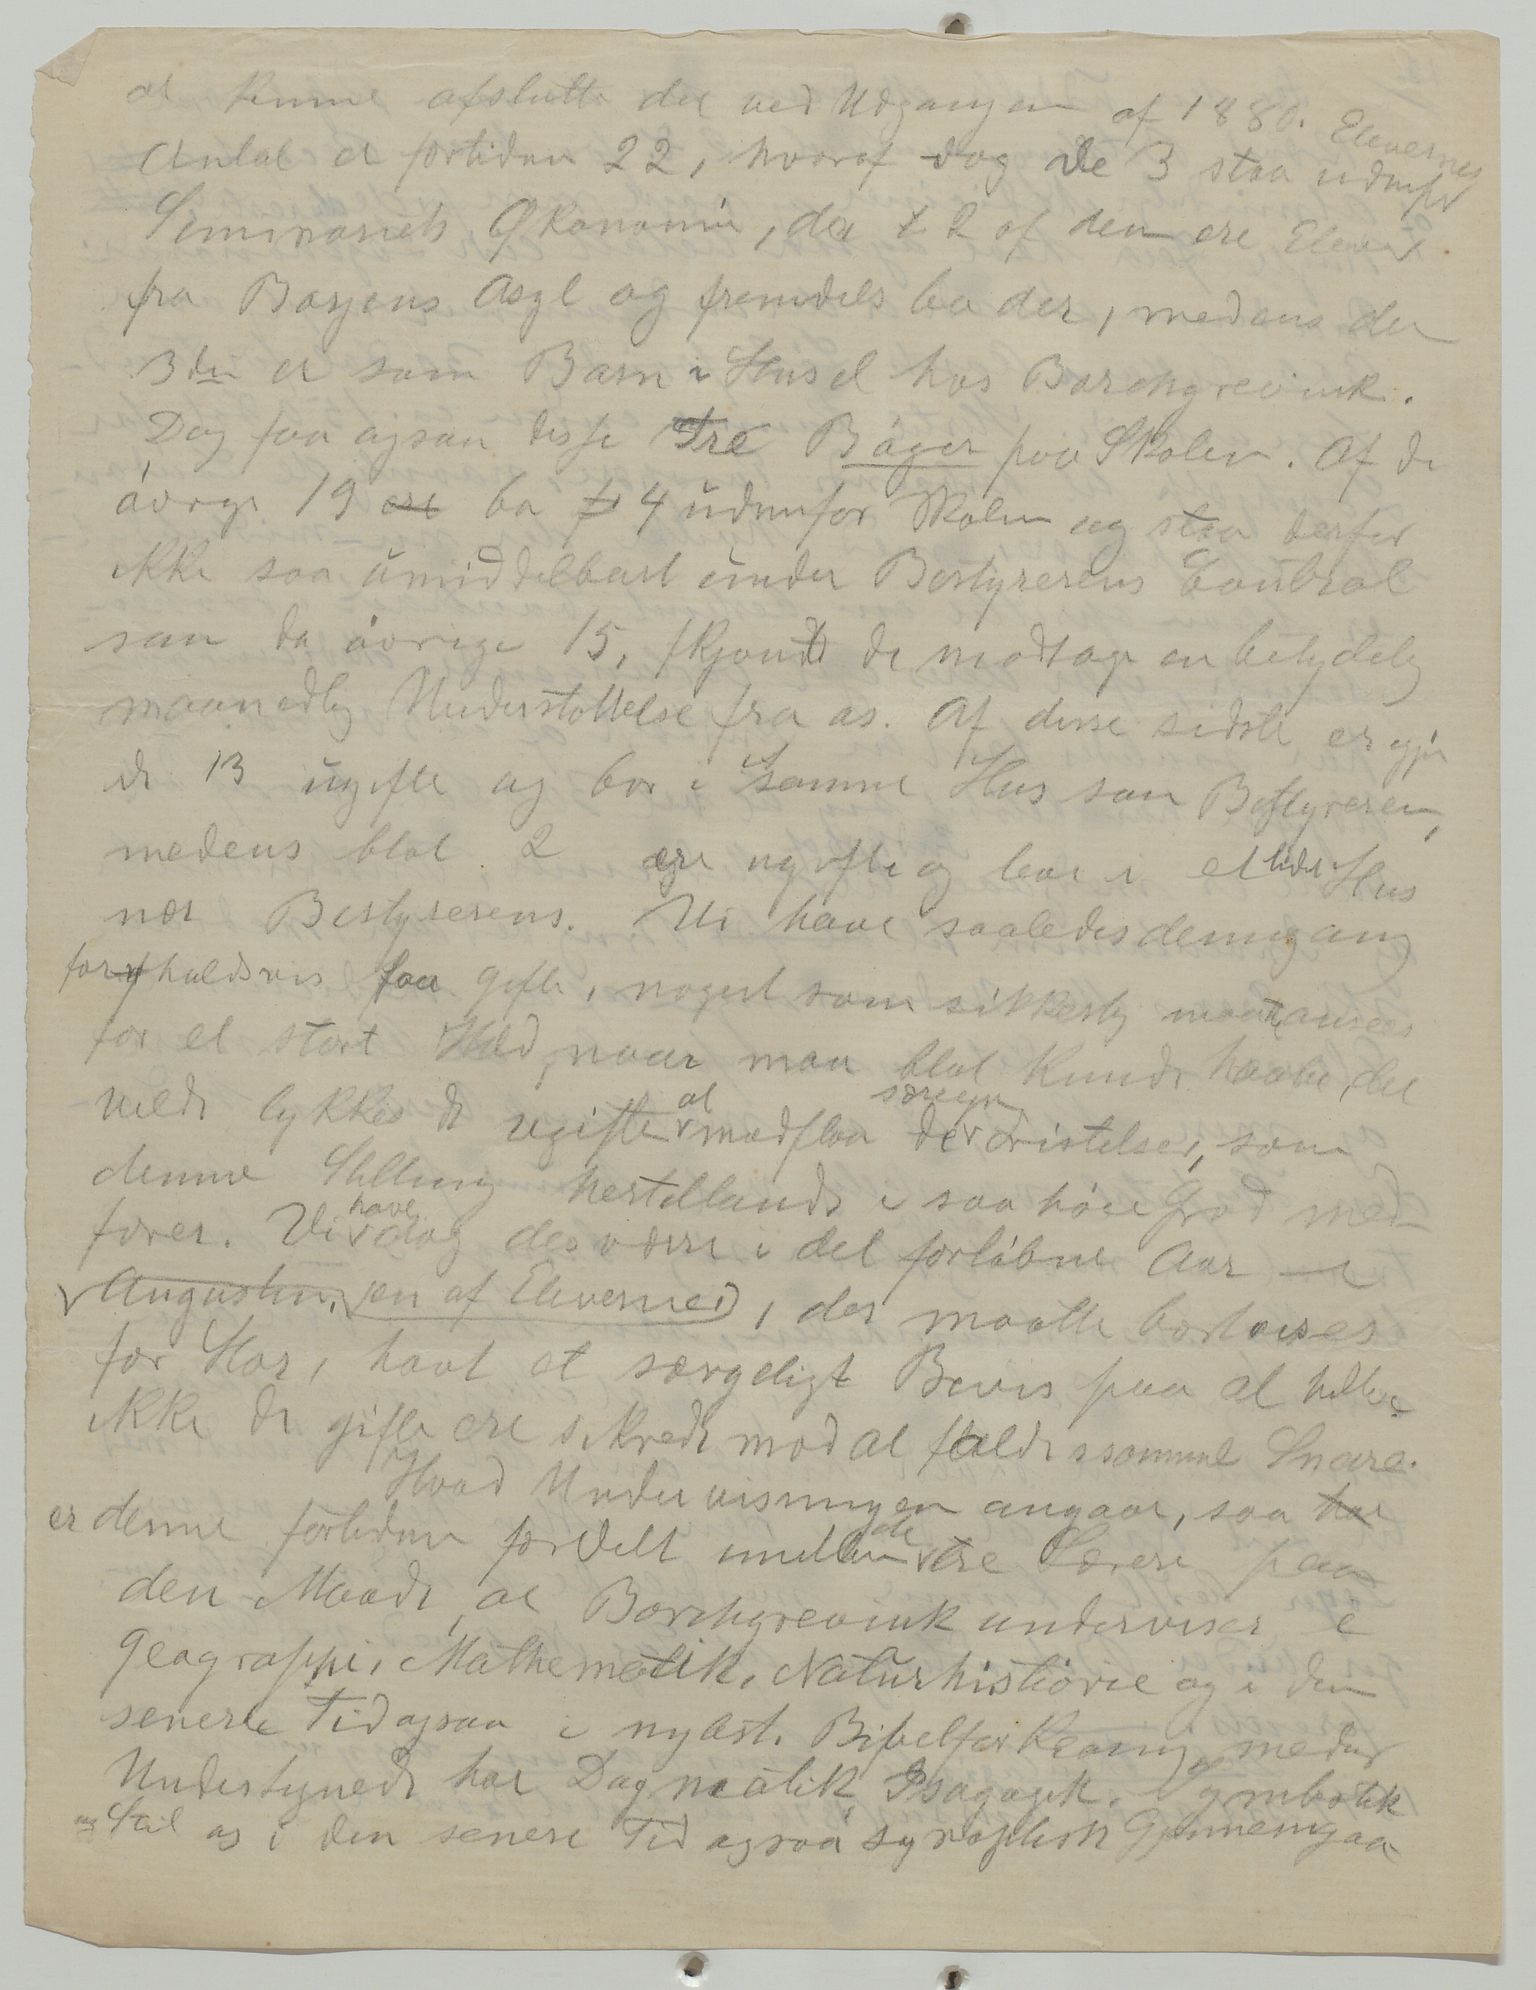 at kunne afslutte det ved Udgangen af 1880. Elevernes
Antal er fortiden 22, hvoraf dog de 3 staa udenfor
Seminariets Økonomi, da 2 af dem ere Elever
fra Borgens Asyl og fremdeles bo der, medens den
3die er som Barn i Huset hos Borchgrevink.
Dog faa ogsaa disse tre Bøger paa Skolen. Af de
øvrige 19 ere bo 4 udenfor Skolen og staa derfor
ikke saa umiddelbart under Bestyrerens Control
som de øvrige 15, skjøndt de modtage en betydelig
maanedlig Understøttelse fra os. Af disse sidste er igjen
de 13 ugifte og bor i samme Hus som Bestyreren,
medens blot 2 ere og bor i et lidet Hus
nær Bestyrerens. Vi have saaledes dennegang
forholdsvis faa gifte, noget som sikkerlig maa ansees
for et stort Held, naar man blot kunde haabe, det
vilde lykkes de ugifte at modstaa de særegne Fristelser, som
denne Stilling hertillands i saa høi Grad med-
fører. Vi have dog desværre i det forløbne Aar
Augustin, en af Eleverne, der maatte bortvises
for Hor, havt et sørgeligt Bevis paa at heller
ikke de gifte ere sikrede mod at falde i samme Snare.
Hvad Undervisningen angaar, saa har
er denne fortiden fordelt imellem de tre Lærere paa
den Maade, at Borchgrevink underviser i
Geographi, Mathematik, Naturhistorie og i den
senere Tid ogsaa i nytest. Bibelforklaring, medens
Undertegnede har Dogmatik, Isagogik, Symbolik
og Stil og i den senere Tid ogsaa synoptisk Gjennemgaa-